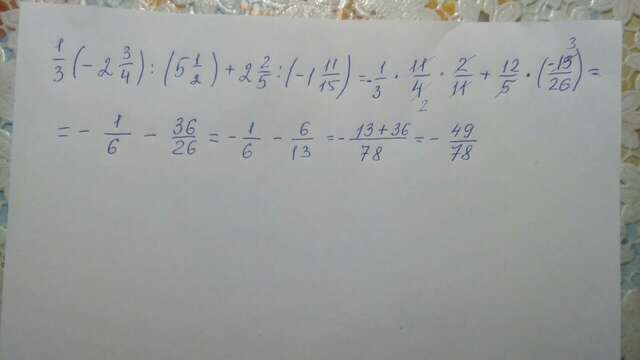 1/3 (-2 3/4) : (5 1/2) + 2 2/5 : (-1 11/15) = -1/3 · 11/4 2 · 2/11 + 12/5 · (-15 3/26) =
= - 1/6 - 36/26 = - 1/6 - 6/13 = - 13+36/78 = - 49/78